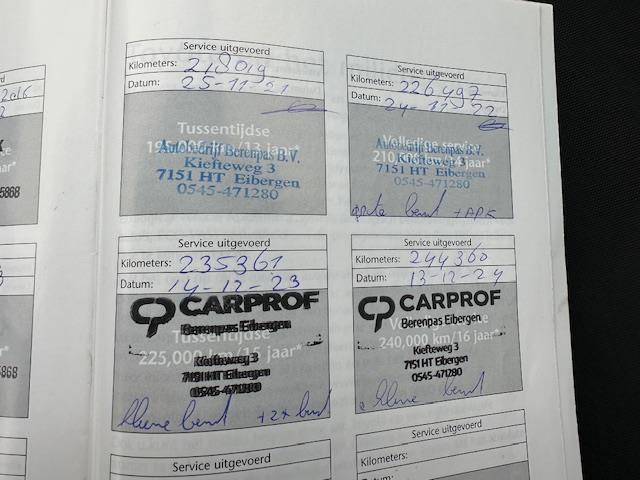 2016
5868
5868
Service uitgevoerd
Kilometers: 218019
Datum: 25-11-21
Tussentijdse
Autobedrijf Berenpas B.V.
Kiefteweg 3
7151 HT Eibergen
0545-471280
Service uitgevoerd
Kilometers: 226497
Datum: 24-11-22
Volledige service
210,000 km/14 jaar*
Autobedrijf Berenpas B.V.
Kiefteweg 3
7151 HT Eibergen
0545-471280
grote beurt + APK
Service uitgevoerd
Kilometers: 235361
Datum: 14-12-23
CARPROF
Berenpas Eibergen
Tussentijdse
225,000 km/15 jaar*
Kiefteweg 3
7151 HT Eibergen
0545-471280
kleine beurt
Service uitgevoerd
Kilometers: 244360
Datum: 13-12-24
CARPROF
Berenpas Eibergen
240,000 km/16 jaar*
Kiefteweg 3
7151 HT Eibergen
0545-471280
kleine beurt
Service uitgevoerd
Service uitgevoerd
Kilometers: